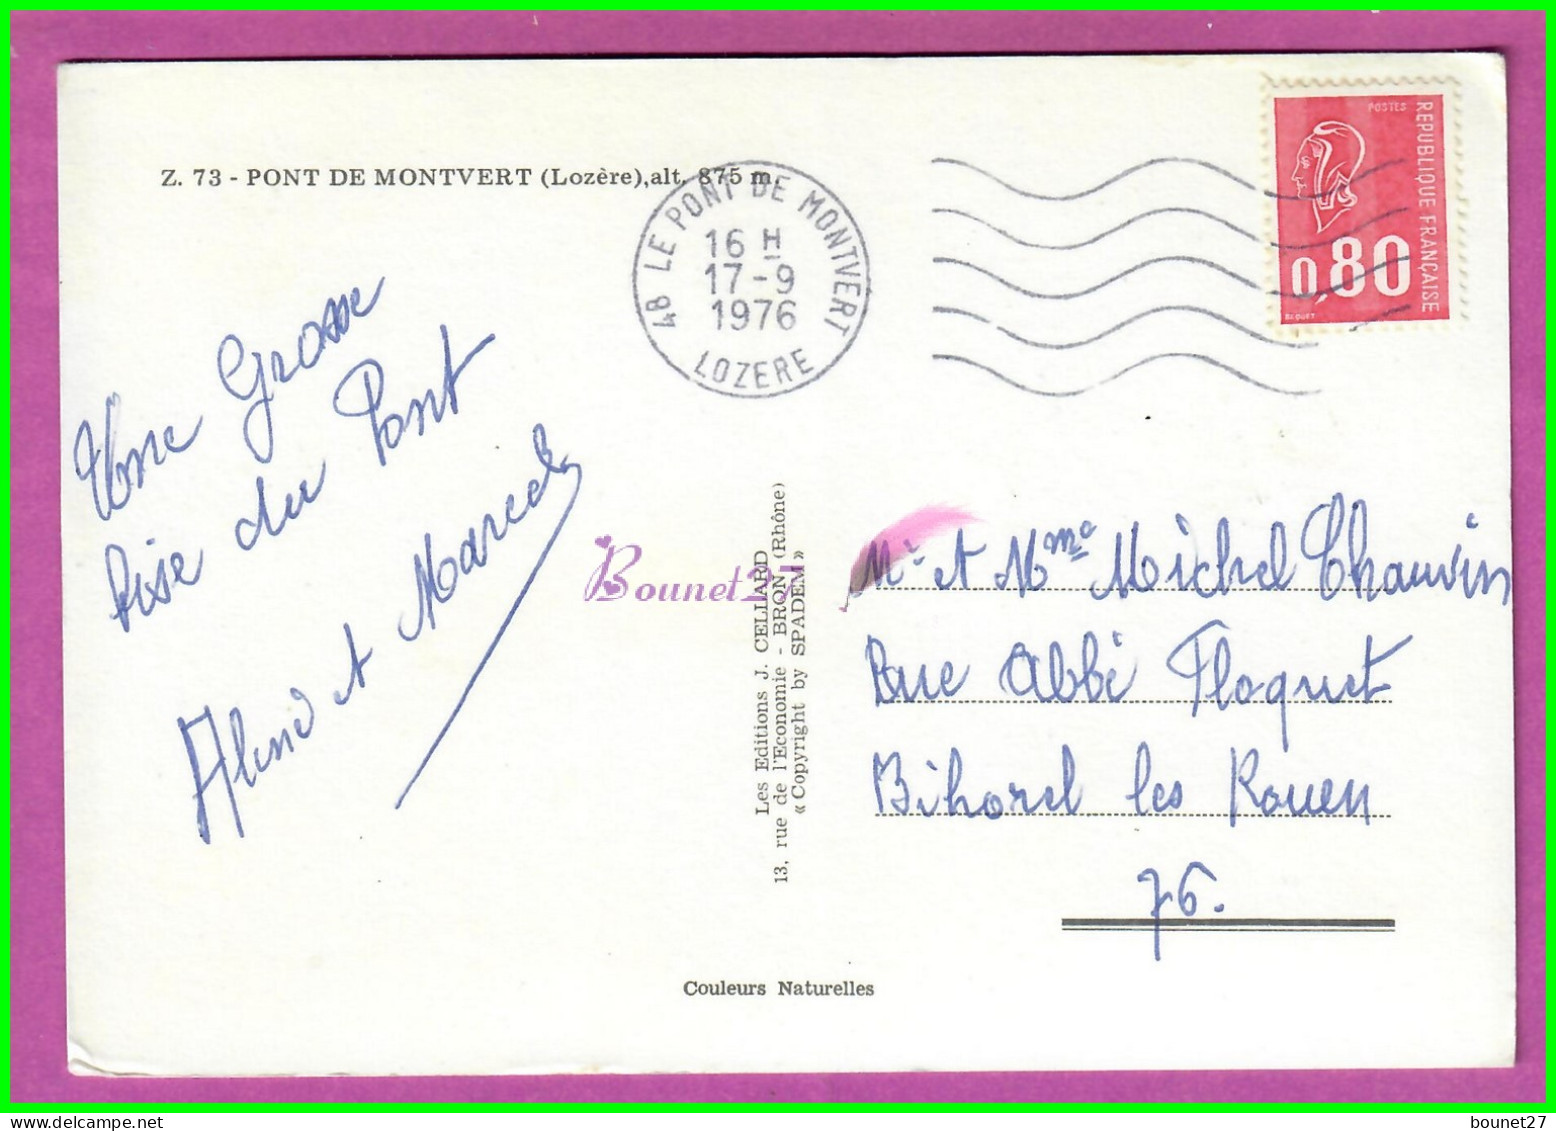 Z. 73 - PONT DE MONTVERT (Lozère), alt. 875 m.
48 LE PONT DE MONTVERT
16 H
17-9
1976
LOZERE
POSTES
REPUBLIQUE FRANÇAISE
0,80
BEQUET
Une Grosse
bise du Pont
et Marcel
Les Editions J. CELLARD
13, rue de l'Economie - BRON (Rhône)
« Copyright by SPADEM »
Bounet27
Mr et Mme Michel Chauvin
Rue Abbé Floquet
Bihorel les Rouen
76.
Couleurs Naturelles
bounet27